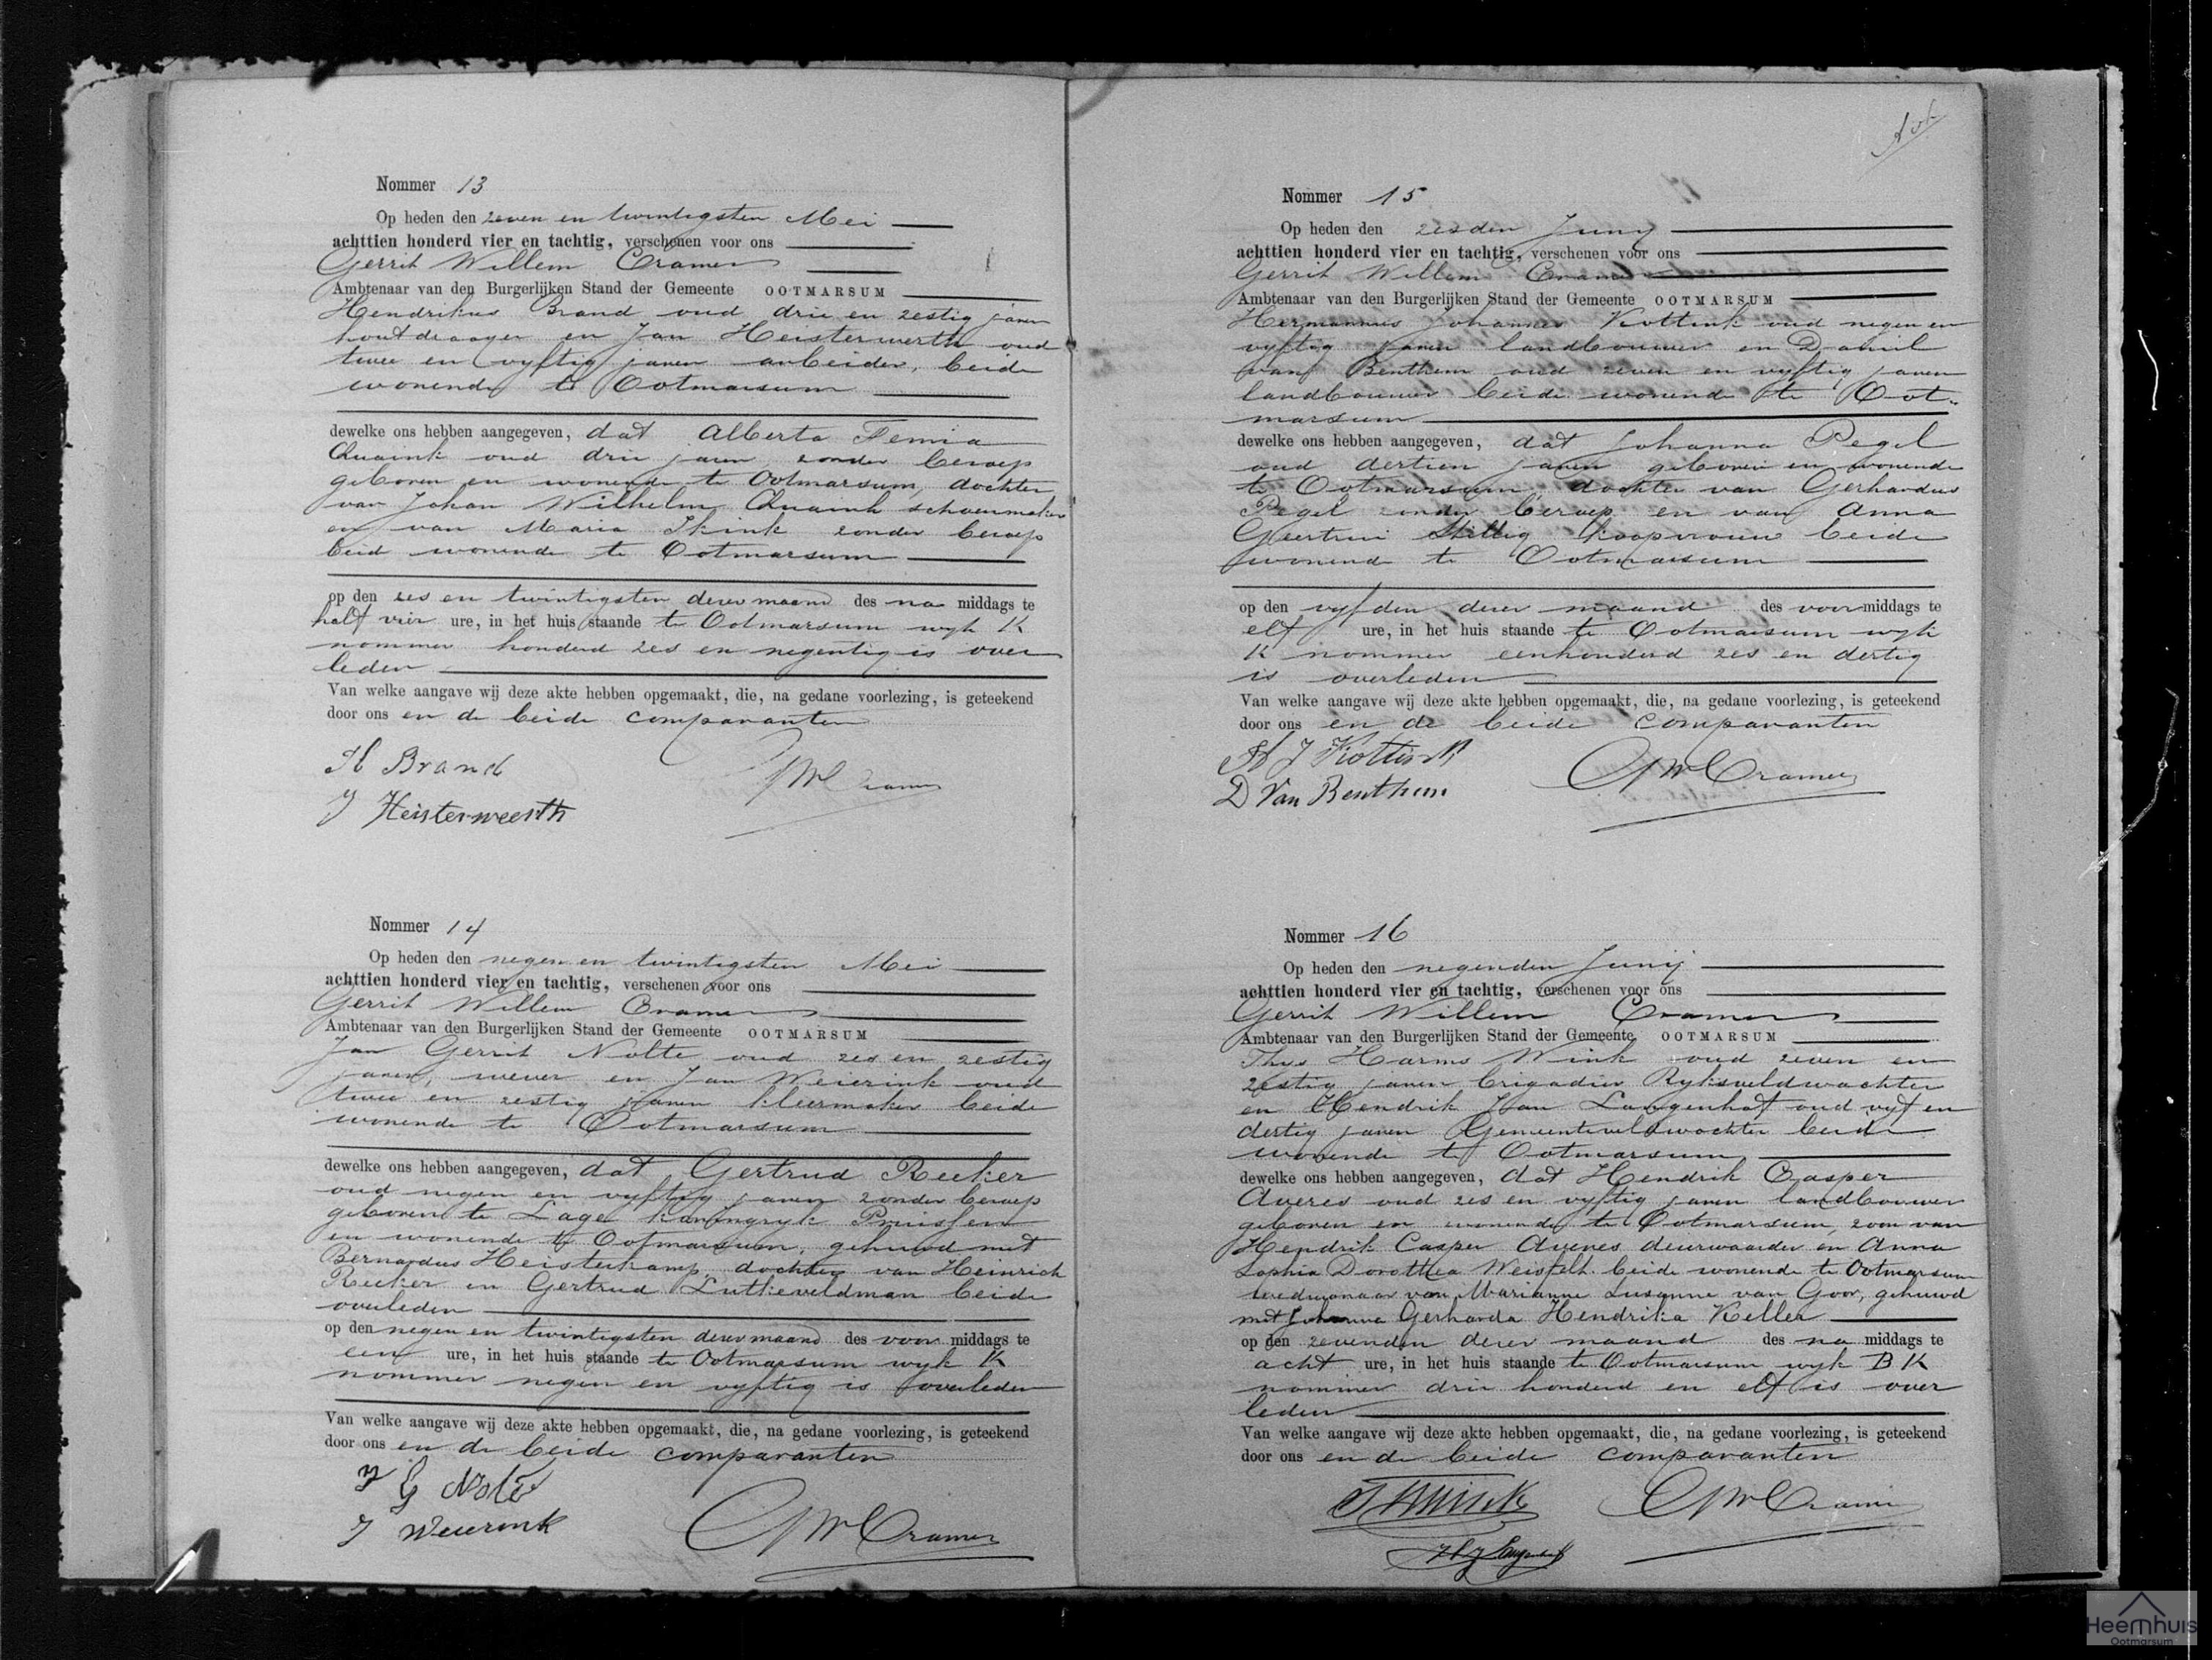 Nommer 13
Op heden den zeven en twintigsten Mei
achttien honderd vier en tachtig, verschenen voor ons
Gerrit Willem Cramer
Ambtenaar van den Burgerlijken Stand der Gemeente OOTMARSUM
Hendrikus Brand oud drie en zestig jaren
houtdraager en Jan Heisterwerth oud
twee en vyftig jaren arbeider, beide
wonende te Ootmarsum
dewelke ons hebben aangegeven, dat Alberta Femia
Quaink oud drie jaren zonder beroep
geboren en wonende te Ootmarsum, dochter
van Johan Wilhelm Quaink schoenmaker
en van Maria zonder beroep
beid wonende te Ootmarsum
op den zes en twintigsten dezer maand des na middags te
half vier ure, in het huis staande te Ootmarsum wyk K
nommer honderd zes en negentig is over
leden
Van welke aangave wij deze akte hebben opgemaakt, die, na gedane voorlezing, is geteekend
door ons en de beide comparanten
H Brand
GWCramer
J Heisterweerth
Nommer 14
Op heden den negen en twintigsten Mei
achttien honderd vier en tachtig, verschenen voor ons
Gerrit Willem Cramer
Ambtenaar van den Burgerlijken Stand der Gemeente OOTMARSUM
Jan Gerrit Nolte oud zes en zestig
jaren, wever en Jan Weierink oud
twee en zestig jaren kleermaker beide
wonende te Ootmarsum
dewelke ons hebben aangegeven, dat Gertrud Reeker
oud negen en vyftig jaren zonder beroep
geboren te Lage Koningryk Pruissen
en wonende te Ootmarsum, gehuwd met
Bernardus Heisterkamp, dochter van Heinrich
Reeker en Gertrud Lutkeveldman beide
overleden
op den negen en twintigsten dezer maand des voor middags te
een ure, in het huis staande te Ootmarsum wyk K
nommer negen en vyftig is overleden
Van welke aangave wij deze akte hebben opgemaakt, die, na gedane voorlezing, is geteekend
door ons en de beide comparanten
J G Nolte
J Weierink
GWCramer
Nommer 15
Op heden den zesden Juny
achttien honderd vier en tachtig, verschenen voor ons
Gerrit Willem Cramer
Ambtenaar van den Burgerlijken Stand der Gemeente OOTMARSUM
Hermannus Johannes Kottink oud negen en
vyftig jaren landbouwer en Daniel
van Benthem oud zeven en vyftig jaren
landbouwer beide wonende te Oot-
marsum
dewelke ons hebben aangegeven, dat Johanna Pegel
oud dertien jaren geboren en wonende
te Ootmarsum, dochter van Gerhardus
Pegel zonder beroep en van Anna
Geertrui koopvrouw beide
wonende te Ootmarsum
op den vyfden dezer maand des voor middags te
elf ure, in het huis staande te Ootmarsum wyk
K nommer eenhonderd zes en dertig
is overleden
Van welke aangave wij deze akte hebben opgemaakt, die, na gedane voorlezing, is geteekend
door ons en de beide comparanten
H J Kottink
GWCramer
D Van Benthem
Nommer 16
Op heden den negenden Junij
achttien honderd vier en tachtig, verschenen voor ons
Gerrit Willem Cramer
Ambtenaar van den Burgerlijken Stand der Gemeente OOTMARSUM
Thys Harms Wink oud zeven en
zestig jaren brigadier Ryksveldwachter
en Hendrik Jan Langenhof oud vyf en
dertig jaren Gemeenteveldwachter beide
wonende te Ootmarsum
dewelke ons hebben aangegeven, dat Hendrik Casper
Averes oud zes en vyftig jaren landbouwer
geboren en wonende te Ootmarsum, zoon van
Hendrik Casper Averes deurwaarder en Anna
Sophia Dorothea Weisfelt beide wonende te Ootmarsum
weduwnaar van Marianne Susanne van Goor, gehuwd
met Johanna Gerharda Hendrika Keller
op den zevenden dezer maand des na middags te
acht ure, in het huis staande te Ootmarsum wyk B K
nommer drie honderd en elf is over
leden
Van welke aangave wij deze akte hebben opgemaakt, die, na gedane voorlezing, is geteekend
door ons en de beide comparanten
THWink
GWCramer
HJ Langenhof
Heemhuis
Ootmarsum